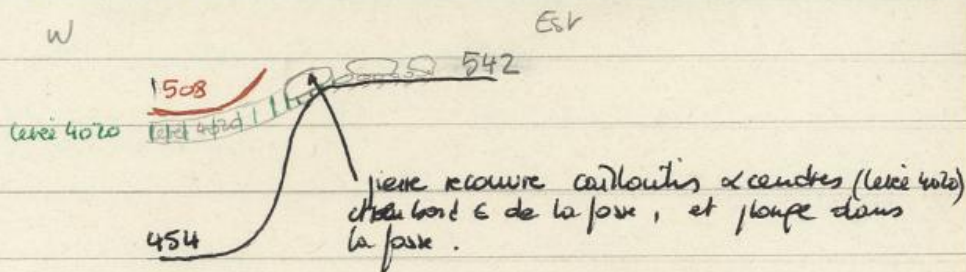 W Est
508 542
levée 4020 levée 4020
pierre recouvre cailloutis & cendres (levée 4020)
bord E de la fosse, et plonge dans
la fosse.
454